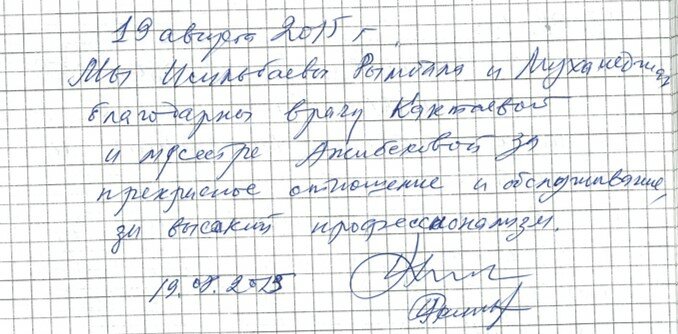 19 августа 2015 г.
Мы Исильбаевы Рымбала и Мухамеджан
благодарны врачу Кактаевой
и м/сестре Ажибековой за
прекрасное отношение и обслуживание,
за высокий профессионализм.
19.08.2015